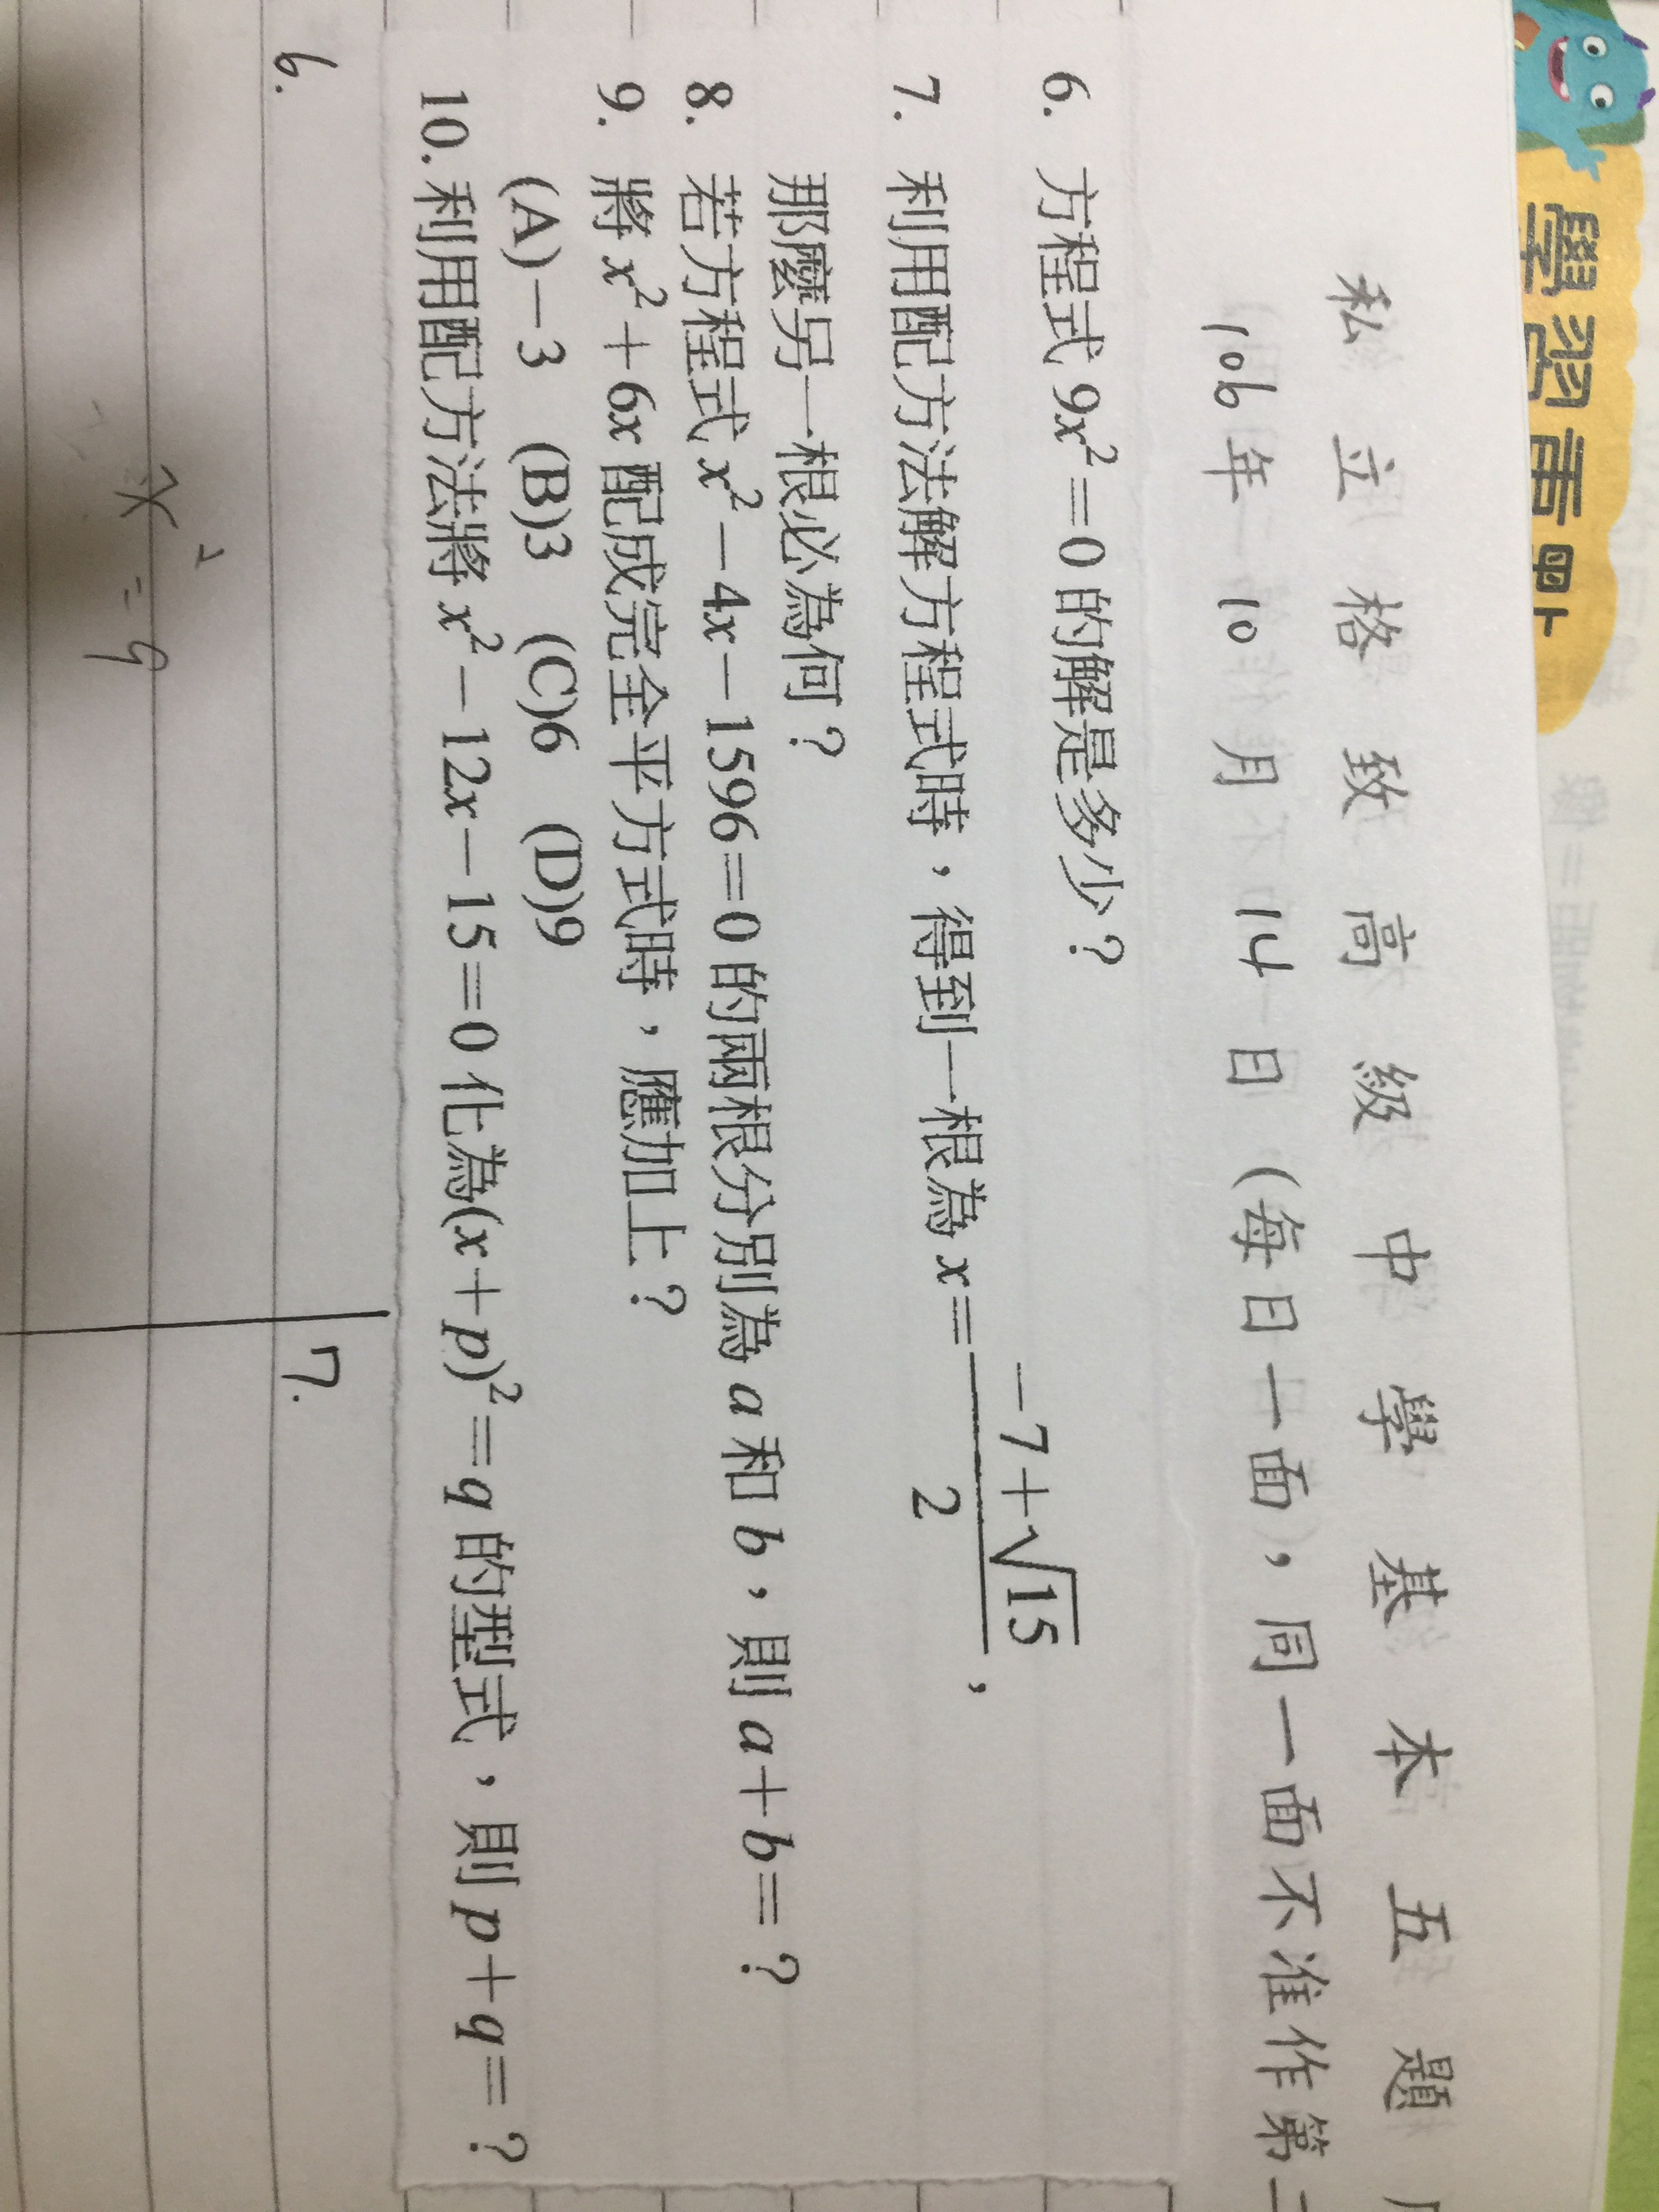 學習重點
私立格致高級中學基本五題
106年10月14日(每日一面),同一面不准作第二
6. 方程式 9x²=0 的解是多少?
7. 利用配方法解方程式時,得到一根為 x=(-7+√15)/2,
那麼另一根必為何?
8. 若方程式 x²-4x-1596=0 的兩根分別為 a 和 b,則 a+b=?
9. 將 x²+6x 配成完全平方式時,應加上?
(A)-3 (B)3 (C)6 (D)9
10. 利用配方法將 x²-12x-15=0 化為(x+p)²=q 的型式,則 p+q=?
6. 7.
x²=9